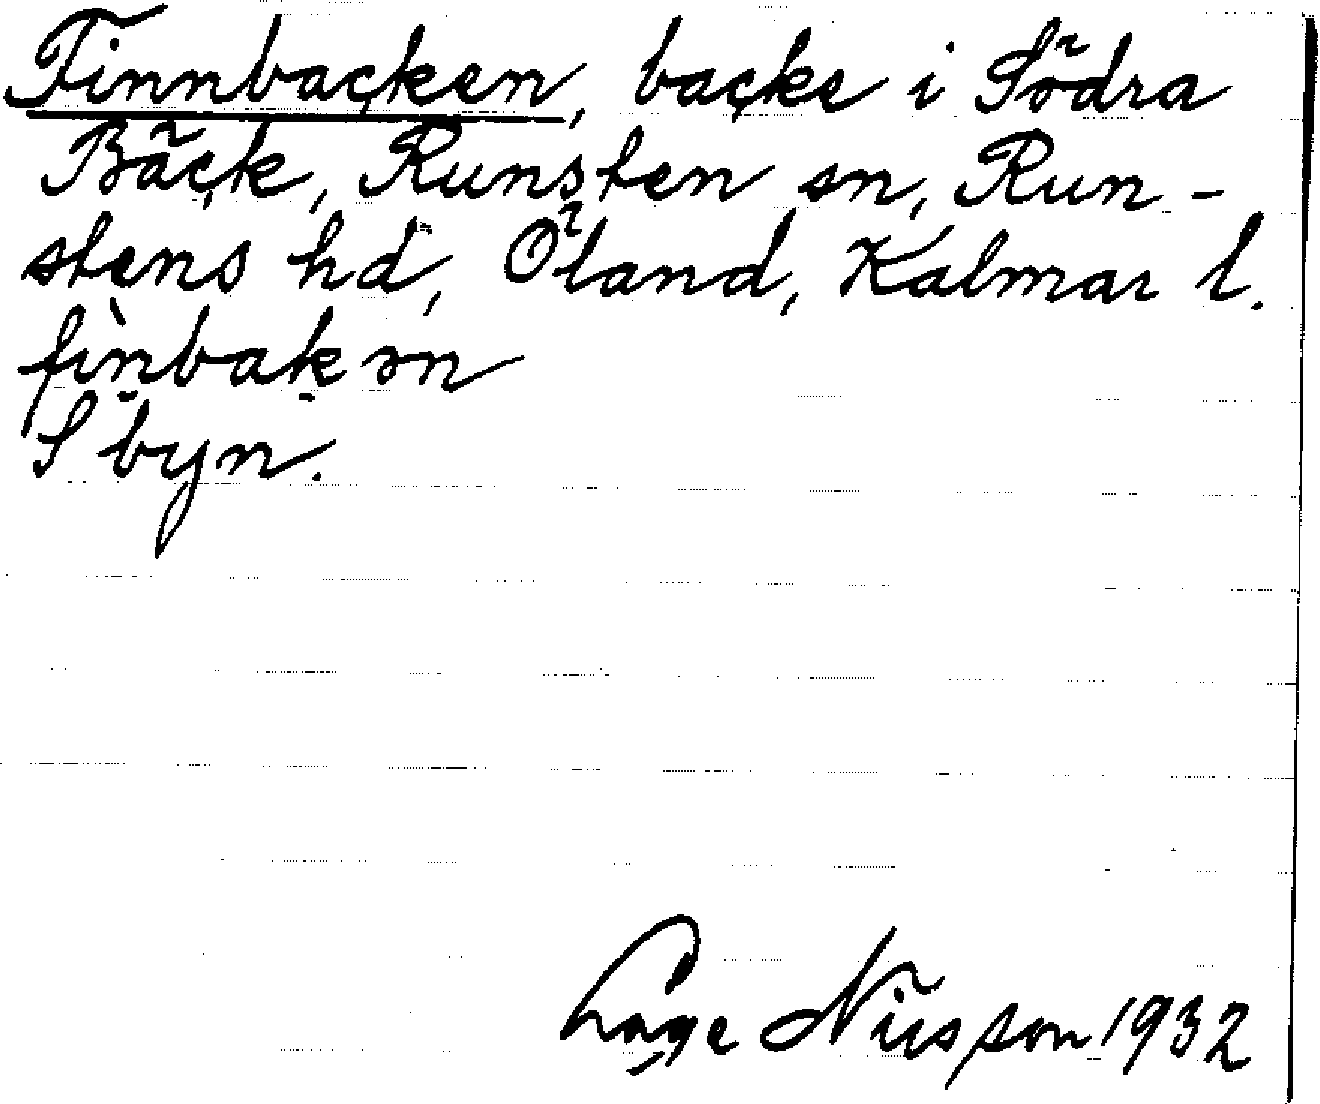 Finnbacken, backe i Södra
Bäck, Runsten sn, Run-
stens hd, Öland, Kalmar l.
fìnbakən
S byn.
Lage Nilsson 1932